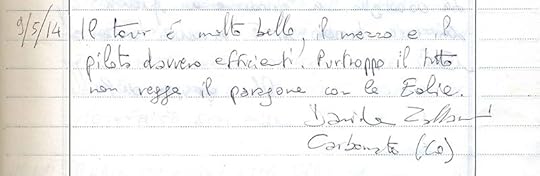 9/5/14 Il tour é molto bello, il mezzo e il
pilota davvero efficienti. Purtroppo il tutto
non regge il paragone con le Eolie.
Davide
Carbonate (Co)